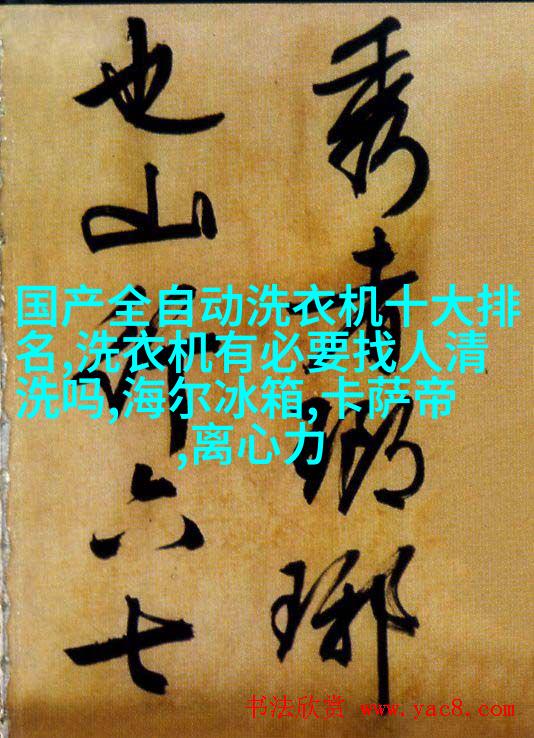 秀者瑯琊
也山行六七
国产全自动洗衣机十大排
名,洗衣机有必要找人清
洗吗,海尔冰箱,卡萨帝
,离心力
书法欣赏 www.yac8.com